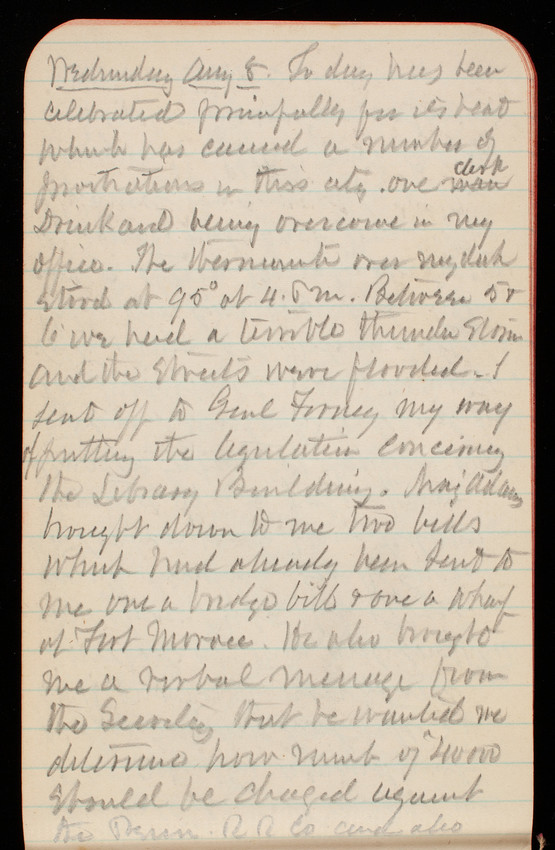 Wednesday Aug 8. To day has been
celebrated principally for its heat
which has caused a number of
prostrations in this city. one clerk
Drinkard being overcome in my
office. The thermomete over my desk
stood at 95° at 4. P m. Between 5 &
6 we had a terrible thunder storm
and the streets were flooded. I
sent off to Genl Forney my way
of putting the legislation concerning
the Library Building. Maj Adams
brought down to me two bills
which had already been sent to
me one a bridge bill & one a wharf
at Fort Monroe. He also brought
me a verbal message from
the Secretary that he wanted me
determine how much of 40000
should be charged against
the Penn. R R Co and also